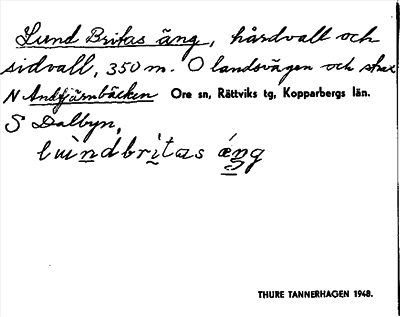 Lund Britas äng, hårdvall och
sidvall, 350 m. O landsvägen och strax
N Andtjärnbäcken Ore sn, Rättviks tg, Kopparbergs län.
S Dalbyn,
britas äŋg
THURE TANNERHAGEN 1948.